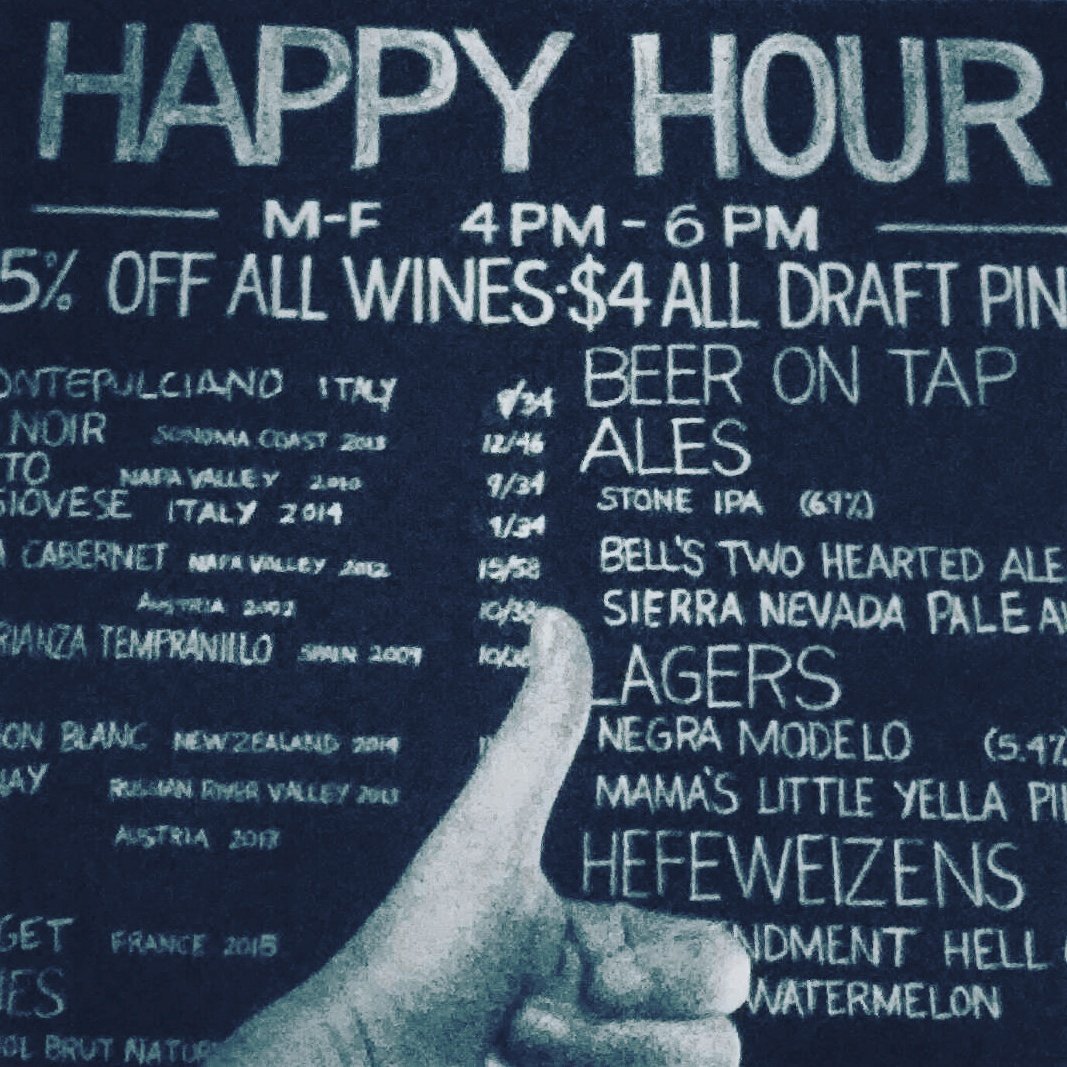 HAPPY HOUR
M-F 4 PM - 6 PM
5% OFF ALL WINES·$4 ALL DRAFT PIN
ONTEPULCIANO ITALY
NOIR SONOMA COAST 2013 12/46
TO NAPA VALLEY 2010 9/34
GIOVESE ITALY 2014 9/34
A CABERNET NAPA VALLEY 2012 15/58
AUSTRIA 10/38
RIANZA TEMPRANILLO SPAIN 2009 10/38
ON BLANC NEW ZEALAND 2014
NAY RUSSIAN RIVER VALLEY 2013
AUSTRIA 2013
GET FRANCE 2015
ES
OL BRUT NATUR
BEER ON TAP
ALES
STONE IPA (6.9%)
BELL'S TWO HEARTED ALE
SIERRA NEVADA PALE A
LAGERS
NEGRA MODELO (5.4%
MAMA'S LITTLE YELLA PI
HEFEWEIZENS
NDMENT HELL
WATERMELON